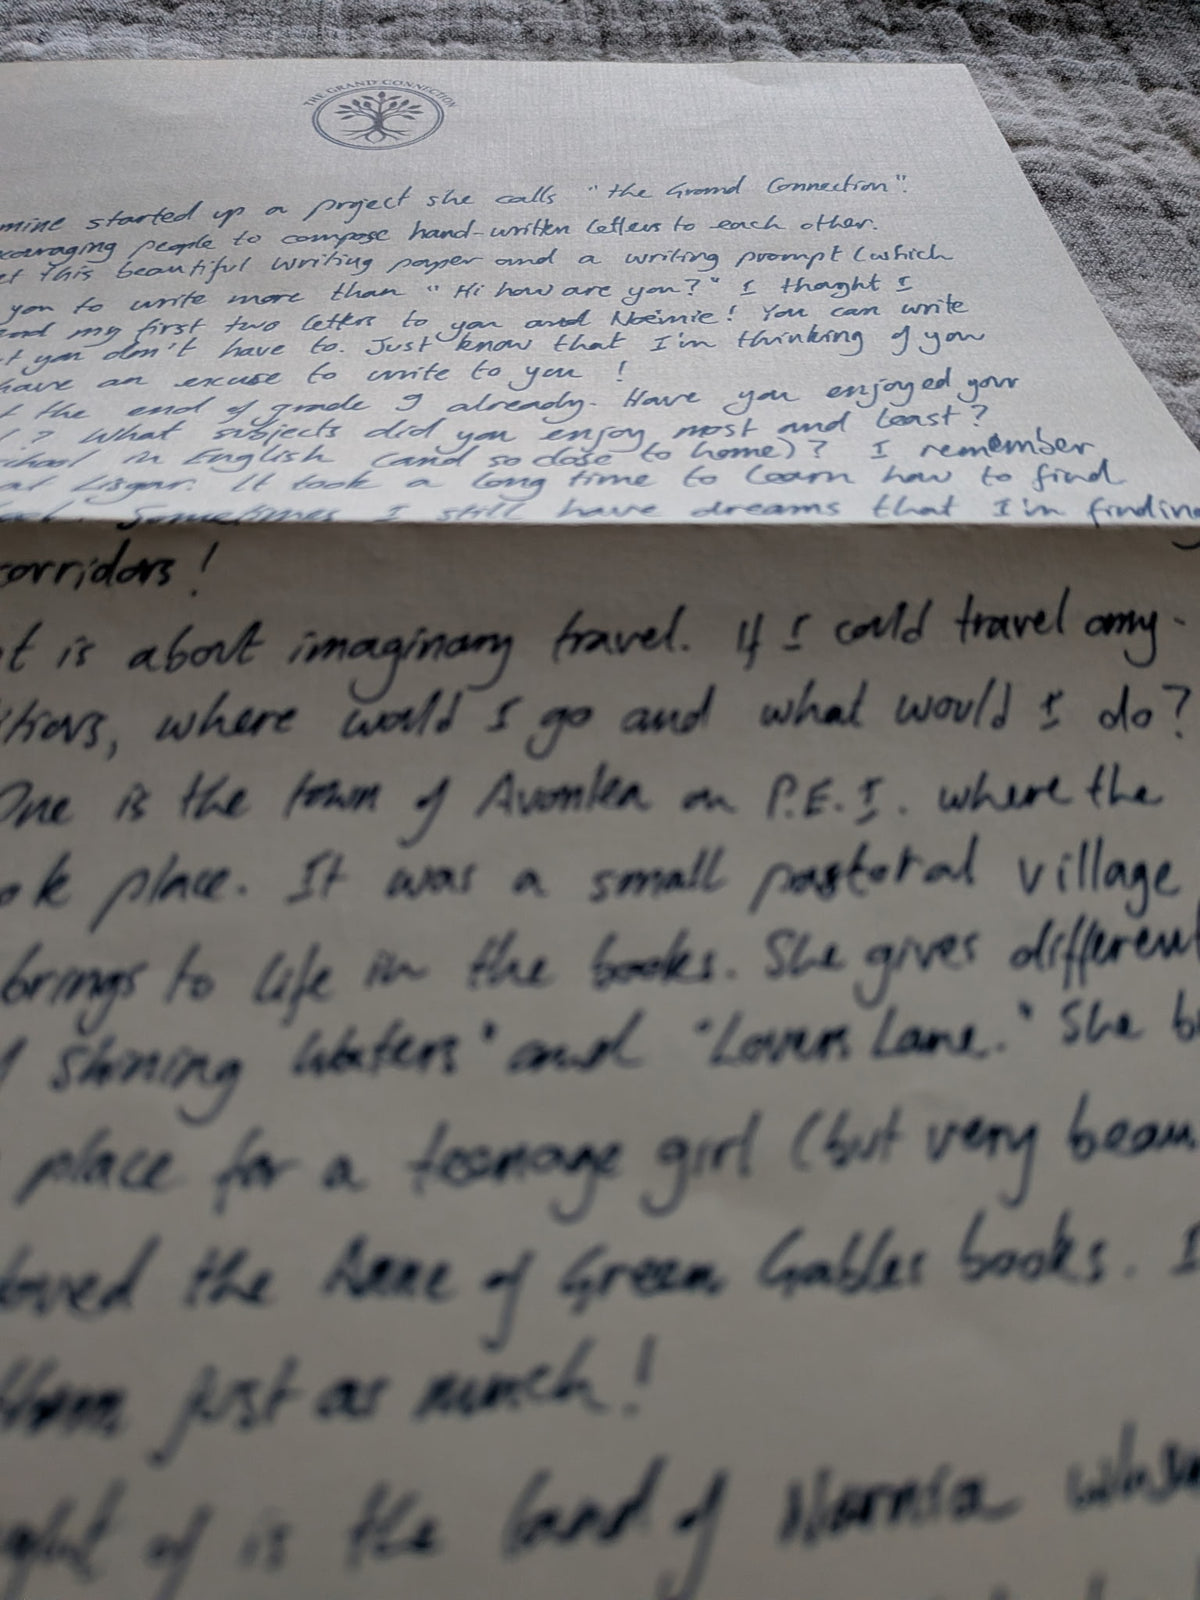 THE GRAND CONNECTION
mine started up a project she calls "the Grand Connection".
couraging people to compose hand-written letters to each other.
et this beautiful writing paper and a writing prompt (which
you to write more than "Hi how are you?" I thought I
end my first two letters to you and Noémie! You can write
t you don't have to. Just know that I'm thinking of you
have an excuse to write to you!
t the end of grade 9 already. Have you enjoyed your
l? What subjects did you enjoy most and least?
chool in English (and so close to home)? I remember
at Lisgar. It took a long time to learn how to find
Sometimes I still have dreams that I'm finding
corridors!
t is about imaginary travel. If I could travel any-
itions, where would I go and what would I do?
One is the town of Avonlea on P.E.I. where the
ook place. It was a small pastoral village
brings to life in the books. She gives different
f Shining Waters" and "Lovers Lane." She b
place for a teenage girl (but very beau
loved the Anne of Green Gables books. I
them just as much!
ght of is the land of Narnia whose